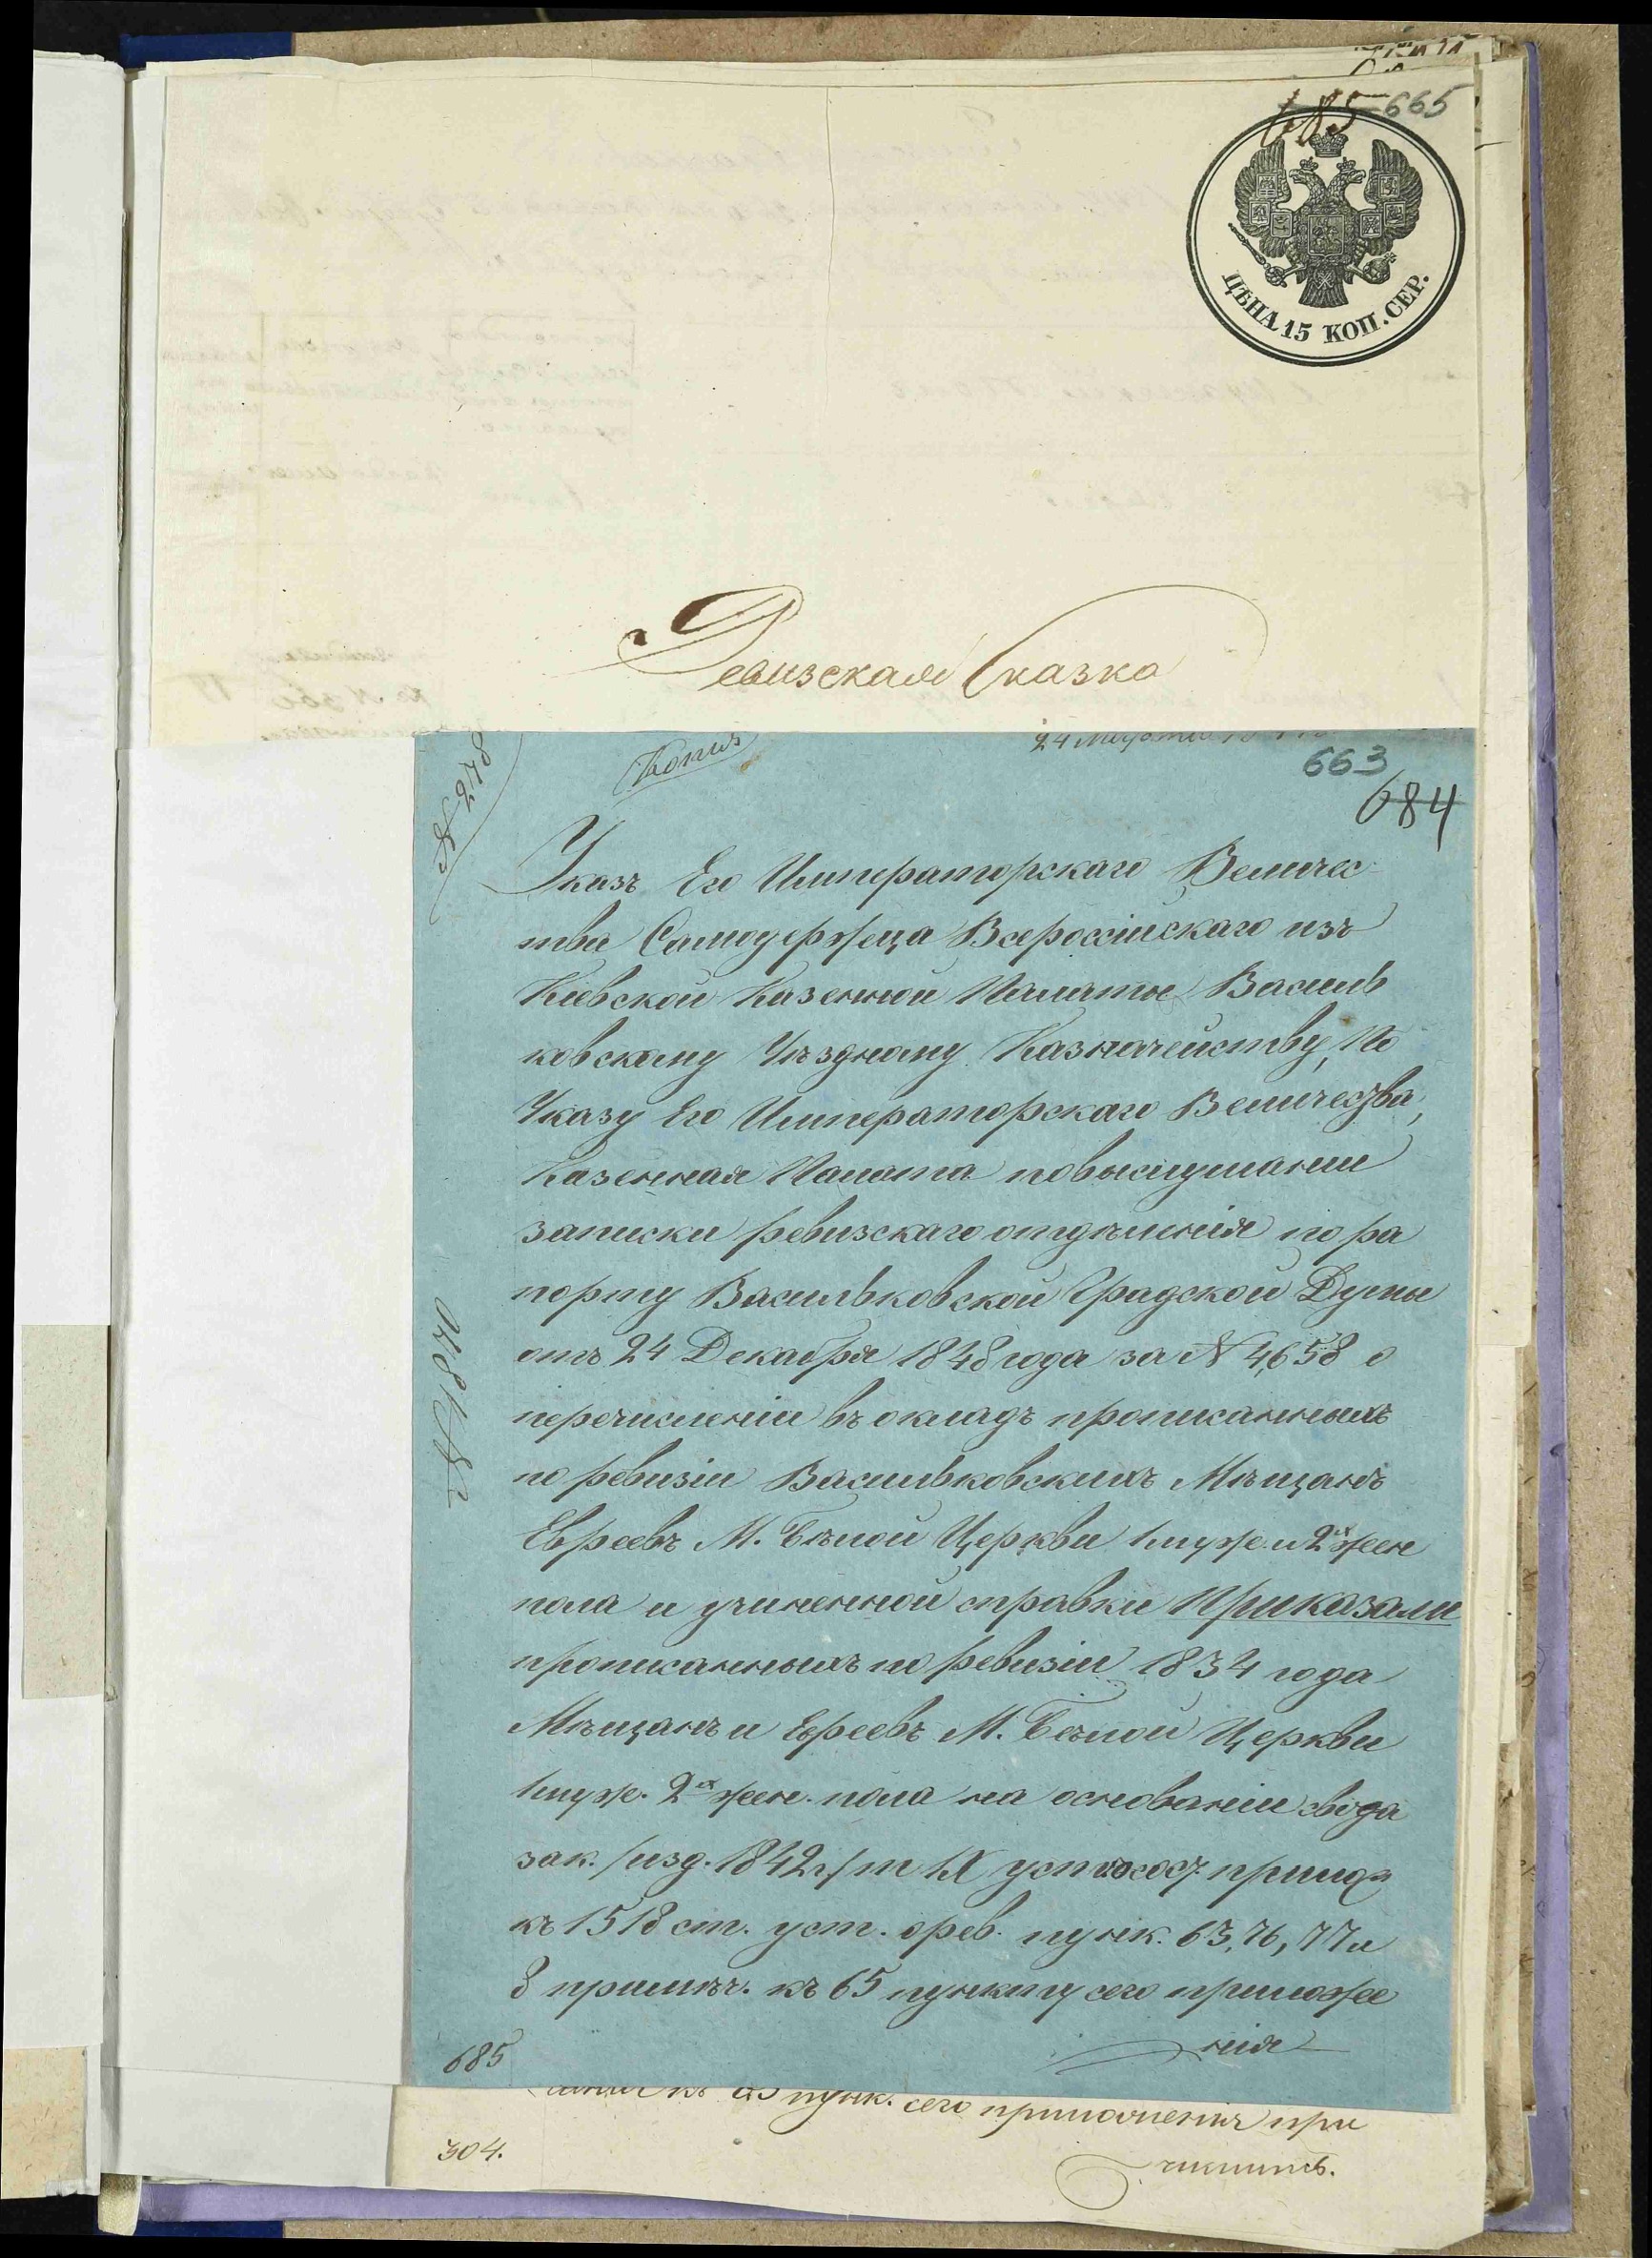 685 665
ЦѢНА 15 КОП. СЕР.
Ревизская Сказка
Копия
663
684
Указъ Его Императорскаго Величес
тва Самодержца Всероссійскаго изъ
Кіевской Казенной Палаты Василь
ковскому Уѣздному Казначейству, По
Указу Его Императорскаго Величества,
Казенная Палата повыслушании
записки ревизскаго отдѣленія по ра
порту Васильковской Градской Думы
отъ 24 Декабря 1848 года за № 4,658 о
перечисленіи въ окладъ прописанныхъ
по ревизіи Васильковскихъ Мѣщанъ
Евреевъ М. Бѣлой Церкви 1 муже. и 2х жен
пола и учиненной справки Приказали
прописанныхъ по ревизіи 1834 года
Мѣщанъ и Евреевъ М. Бѣлой Церкви
1 муже. 2х жен. пола на основаніи свода
зак. /изд. 1842 г/ т IX уст о сос.
къ 1518 ст. уст. о рев. пунк. 63, 76, 77 и
3 примѣч. къ 65 пункту сего приложе
нія
685
пунк. сего приложенія при
числить.
304.